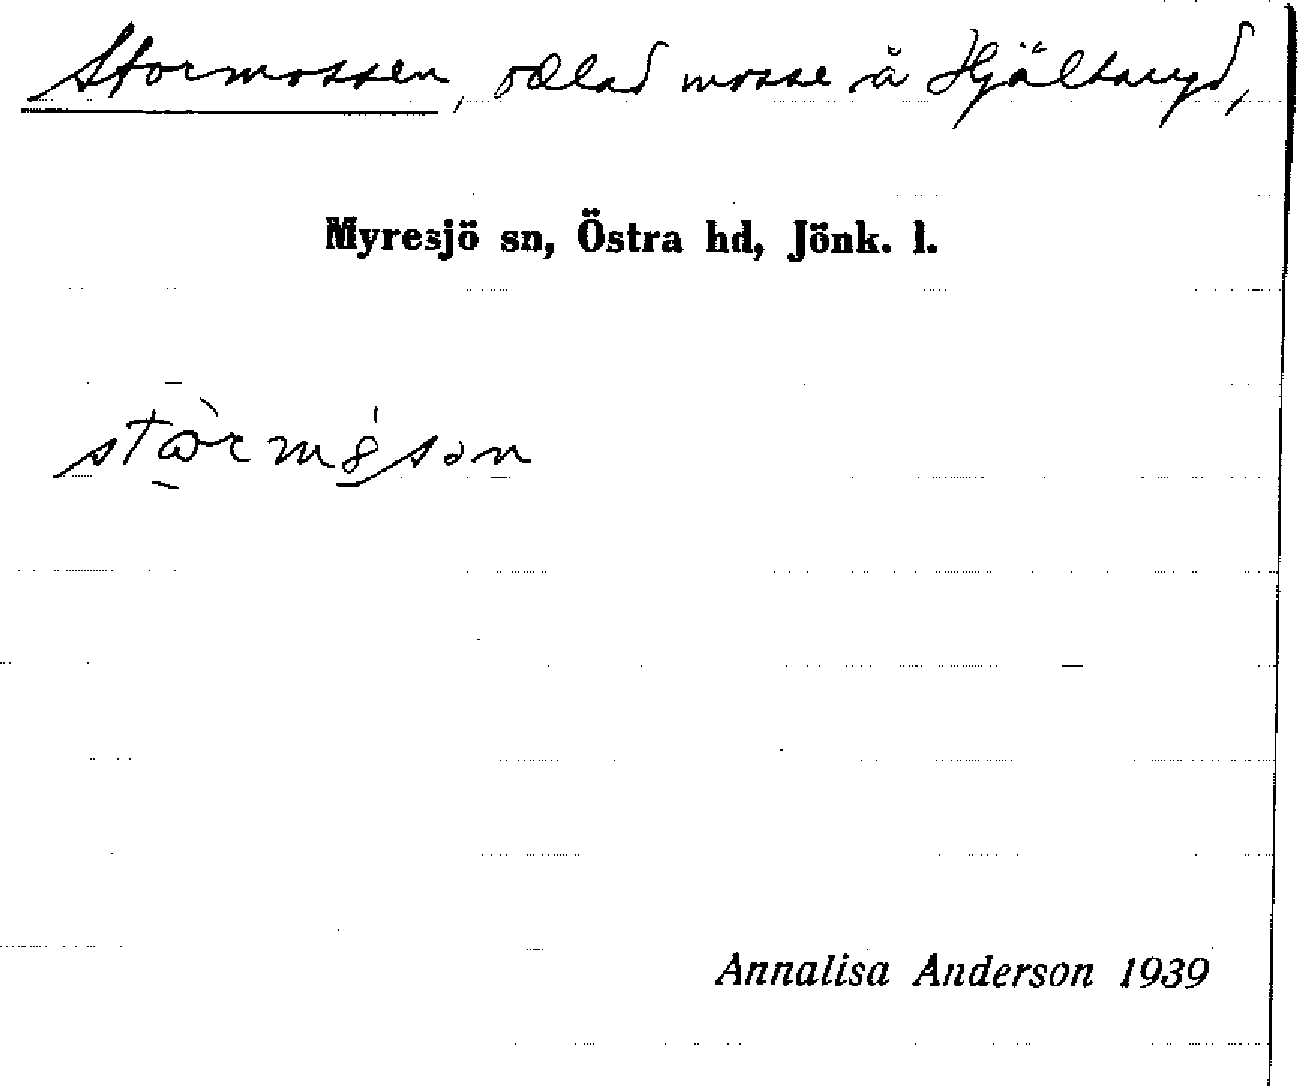 Stormossen, odlad mosse å Hjältaryd,
Myresjö sn, Östra hd, Jönk. l.
Annalisa Anderson 1939